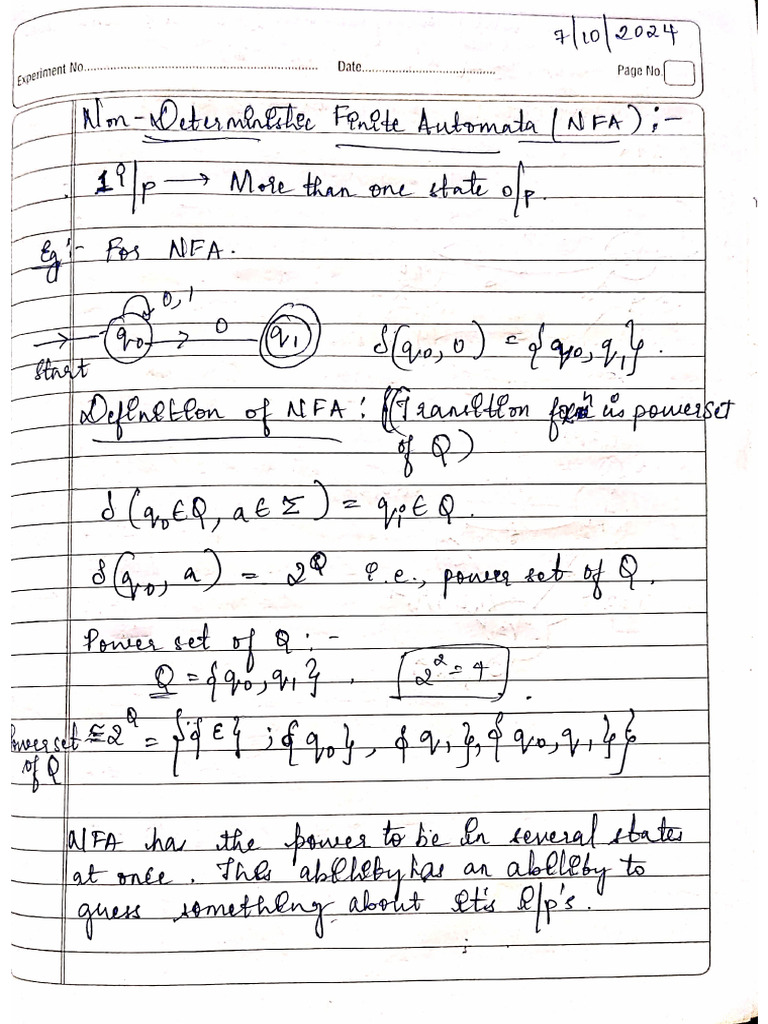 7/10/2024
Experiment No.
Date
Page No.
Non-Deterministic Finite Automata (NFA) :-
1 i/p → More than one state o/p.
Eg:- For NFA.
0,1
Start → q₀ → 0 q₁ δ(q₀, 0) = {q₀, q₁}.
Definition of NFA : ((Transition fxⁿ is powerset
of Q)
δ(q₀ ∈ Q, a ∈ Σ) = qᵢ ∈ Q.
δ(q₀, a) = 2^Q i.e., power set of Q.
Power set of Q : -
Q = {q₀, q₁} . 2² = 4 .
Powerset = 2^Q = {{ε} ; {q₀}, {q₁}, {q₀, q₁}}
of Q
NFA has the power to be in several states
at once. This ability has an ability to
guess something about it's i/p's.